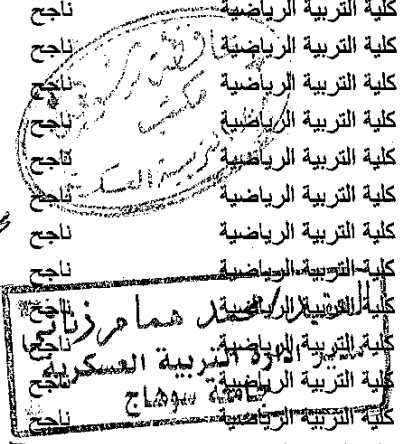 كلية التربية الرياضية ناجح
كلية التربية الرياضية ناجح
كلية التربية الرياضية ناجح
كلية التربية الرياضية ناجح
كلية التربية الرياضية ناجح
كلية التربية الرياضية ناجح
كلية التربية الرياضية ناجح
كلية التربية الرياضية ناجح
كلية التربية الرياضية ناجح
كلية التربية الرياضية ناجح
كلية التربية الرياضية ناجح
كلية التربية الرياضية ناجح
مكتب
التربية العسكرية
العقيد / محمد همام زناتي
مدير ادارة التربية العسكرية
جامعة سوهاج